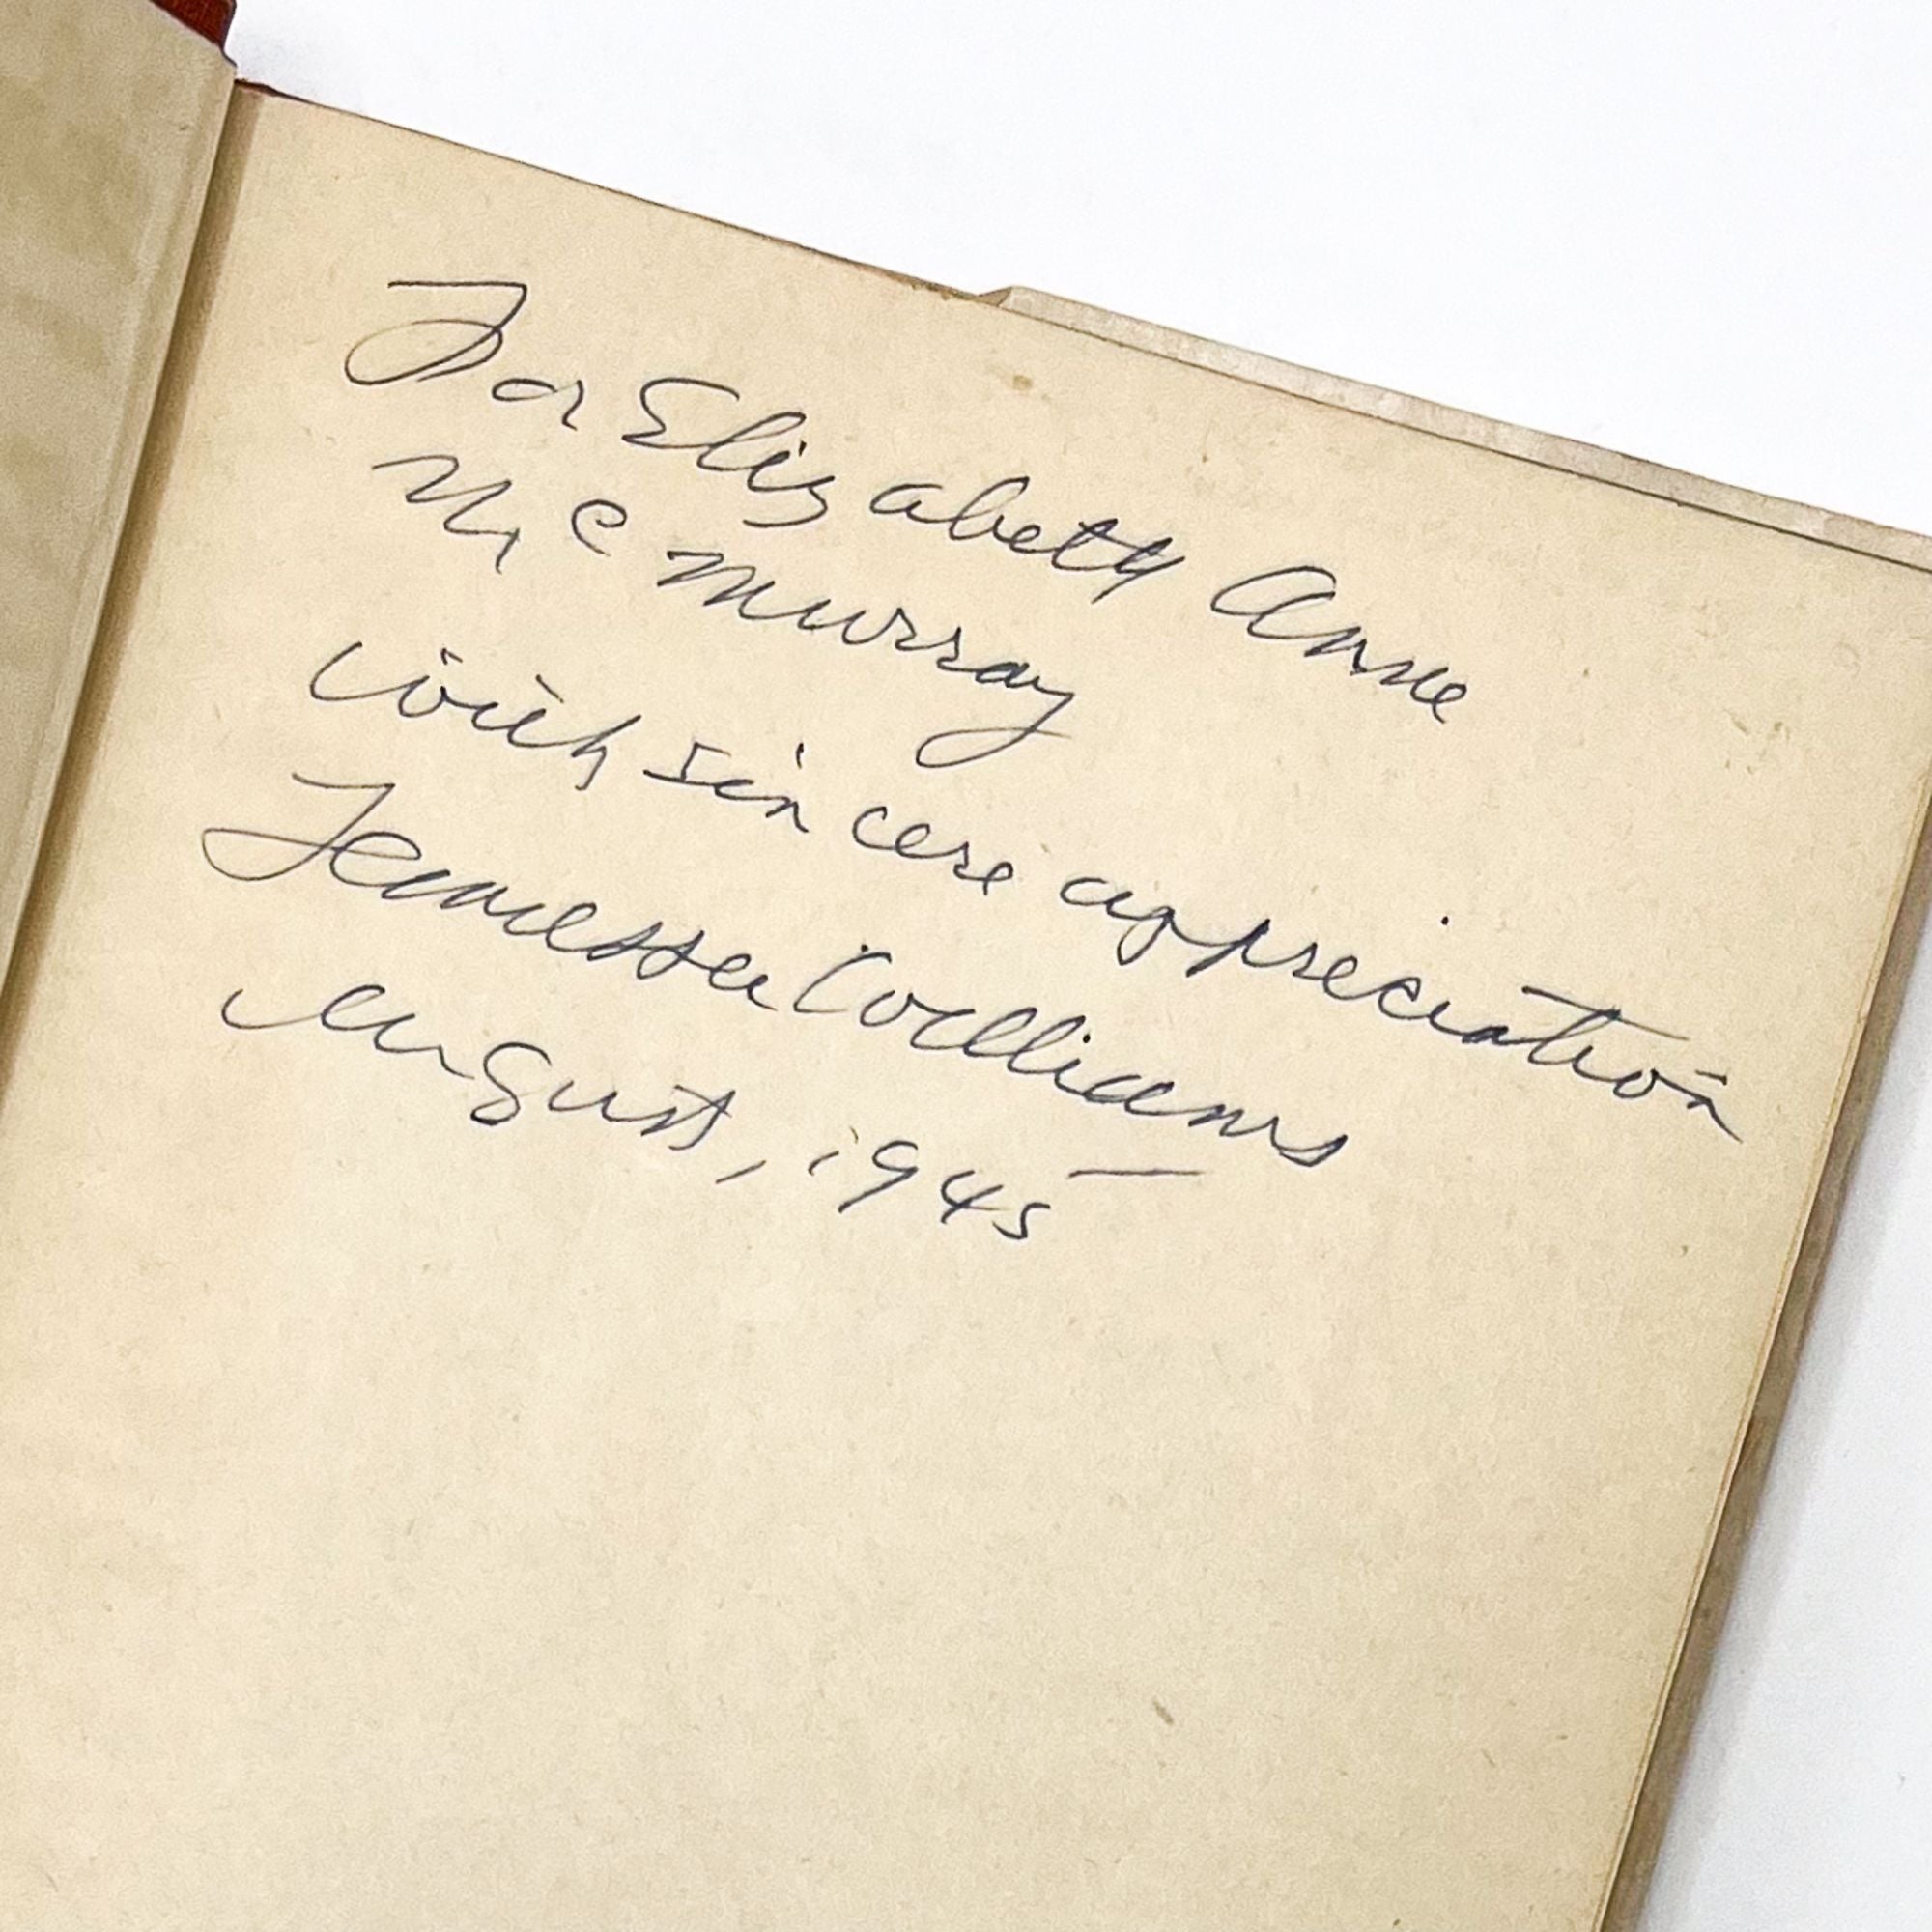 For Elizabeth Anne
Mc Murray
with sincere appreciation
Tennessee Williams
August, 1945